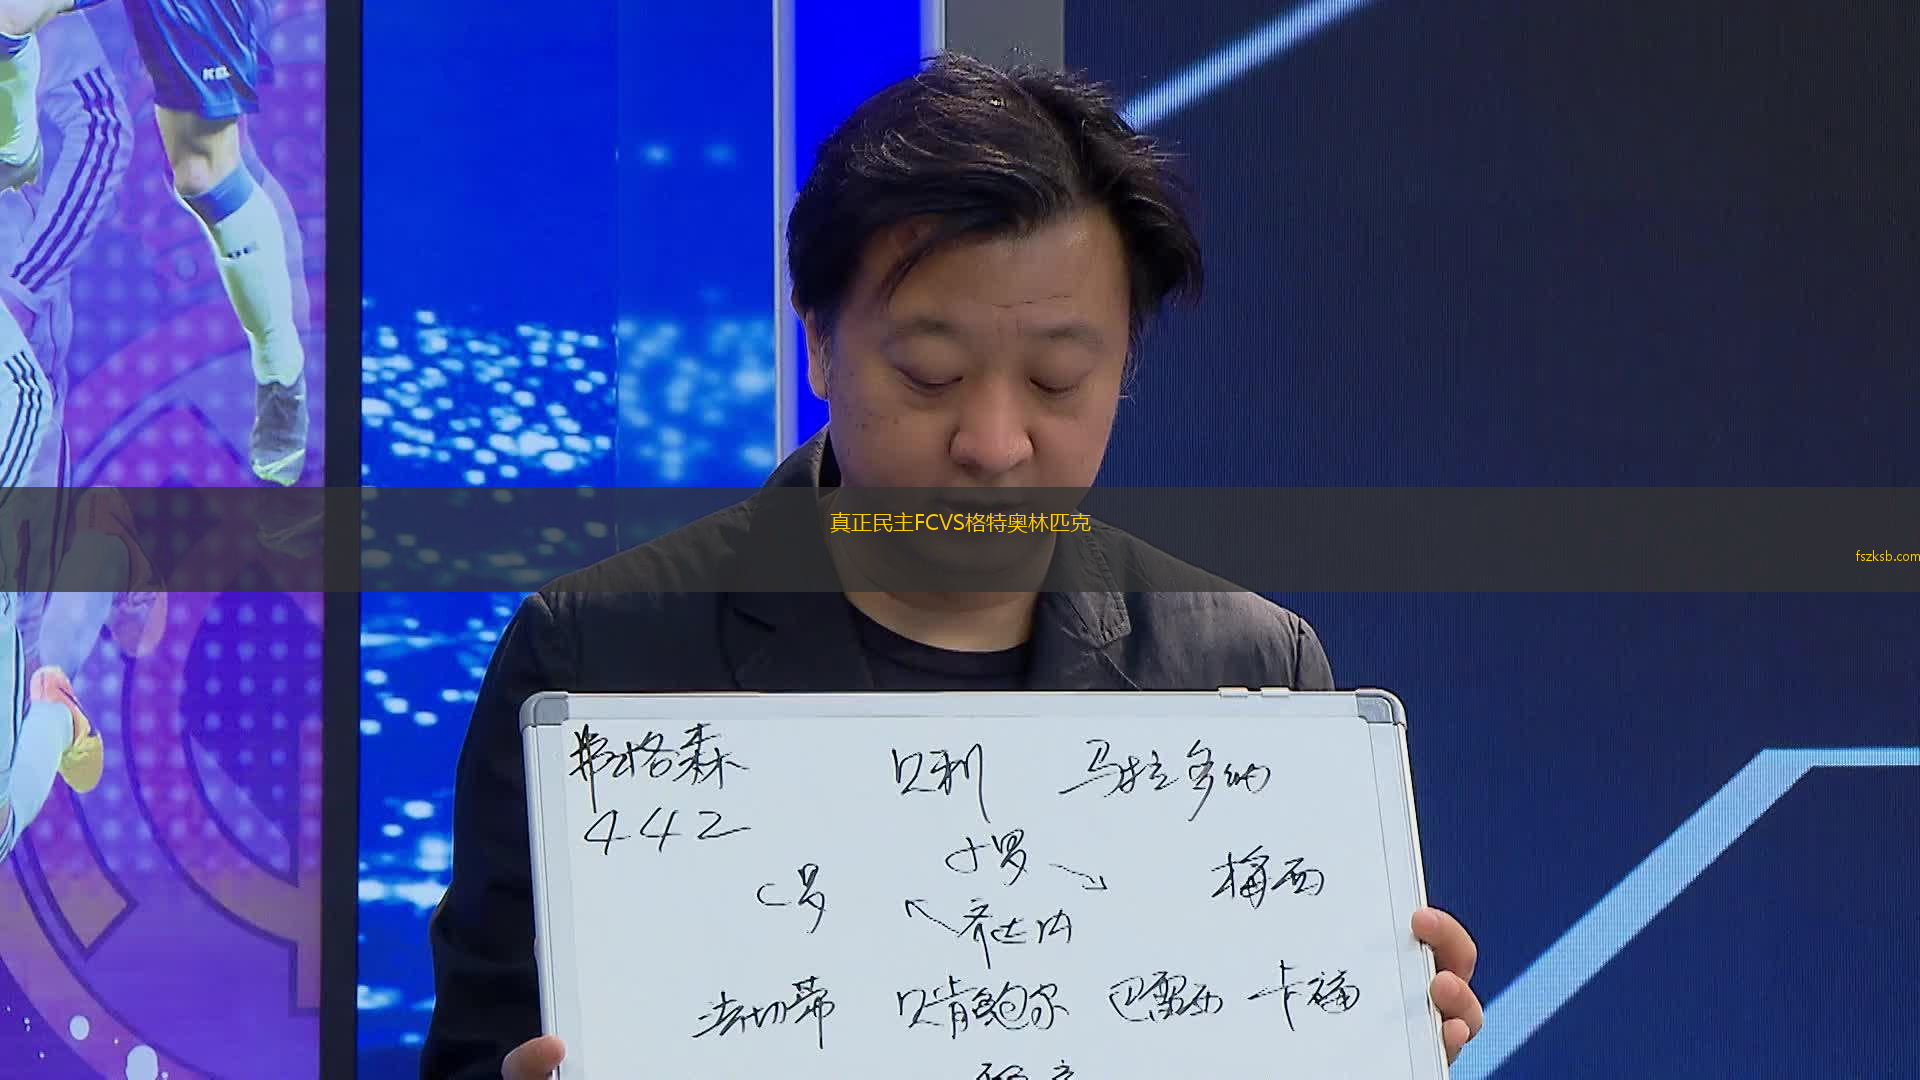 KELME
真正民主FCVS格特奥林匹克
fszksb.com
弗格森 贝利 马拉多纳
442
C罗 小罗 梅西
齐达内
法切蒂 贝肯鲍尔 巴雷西 卡福